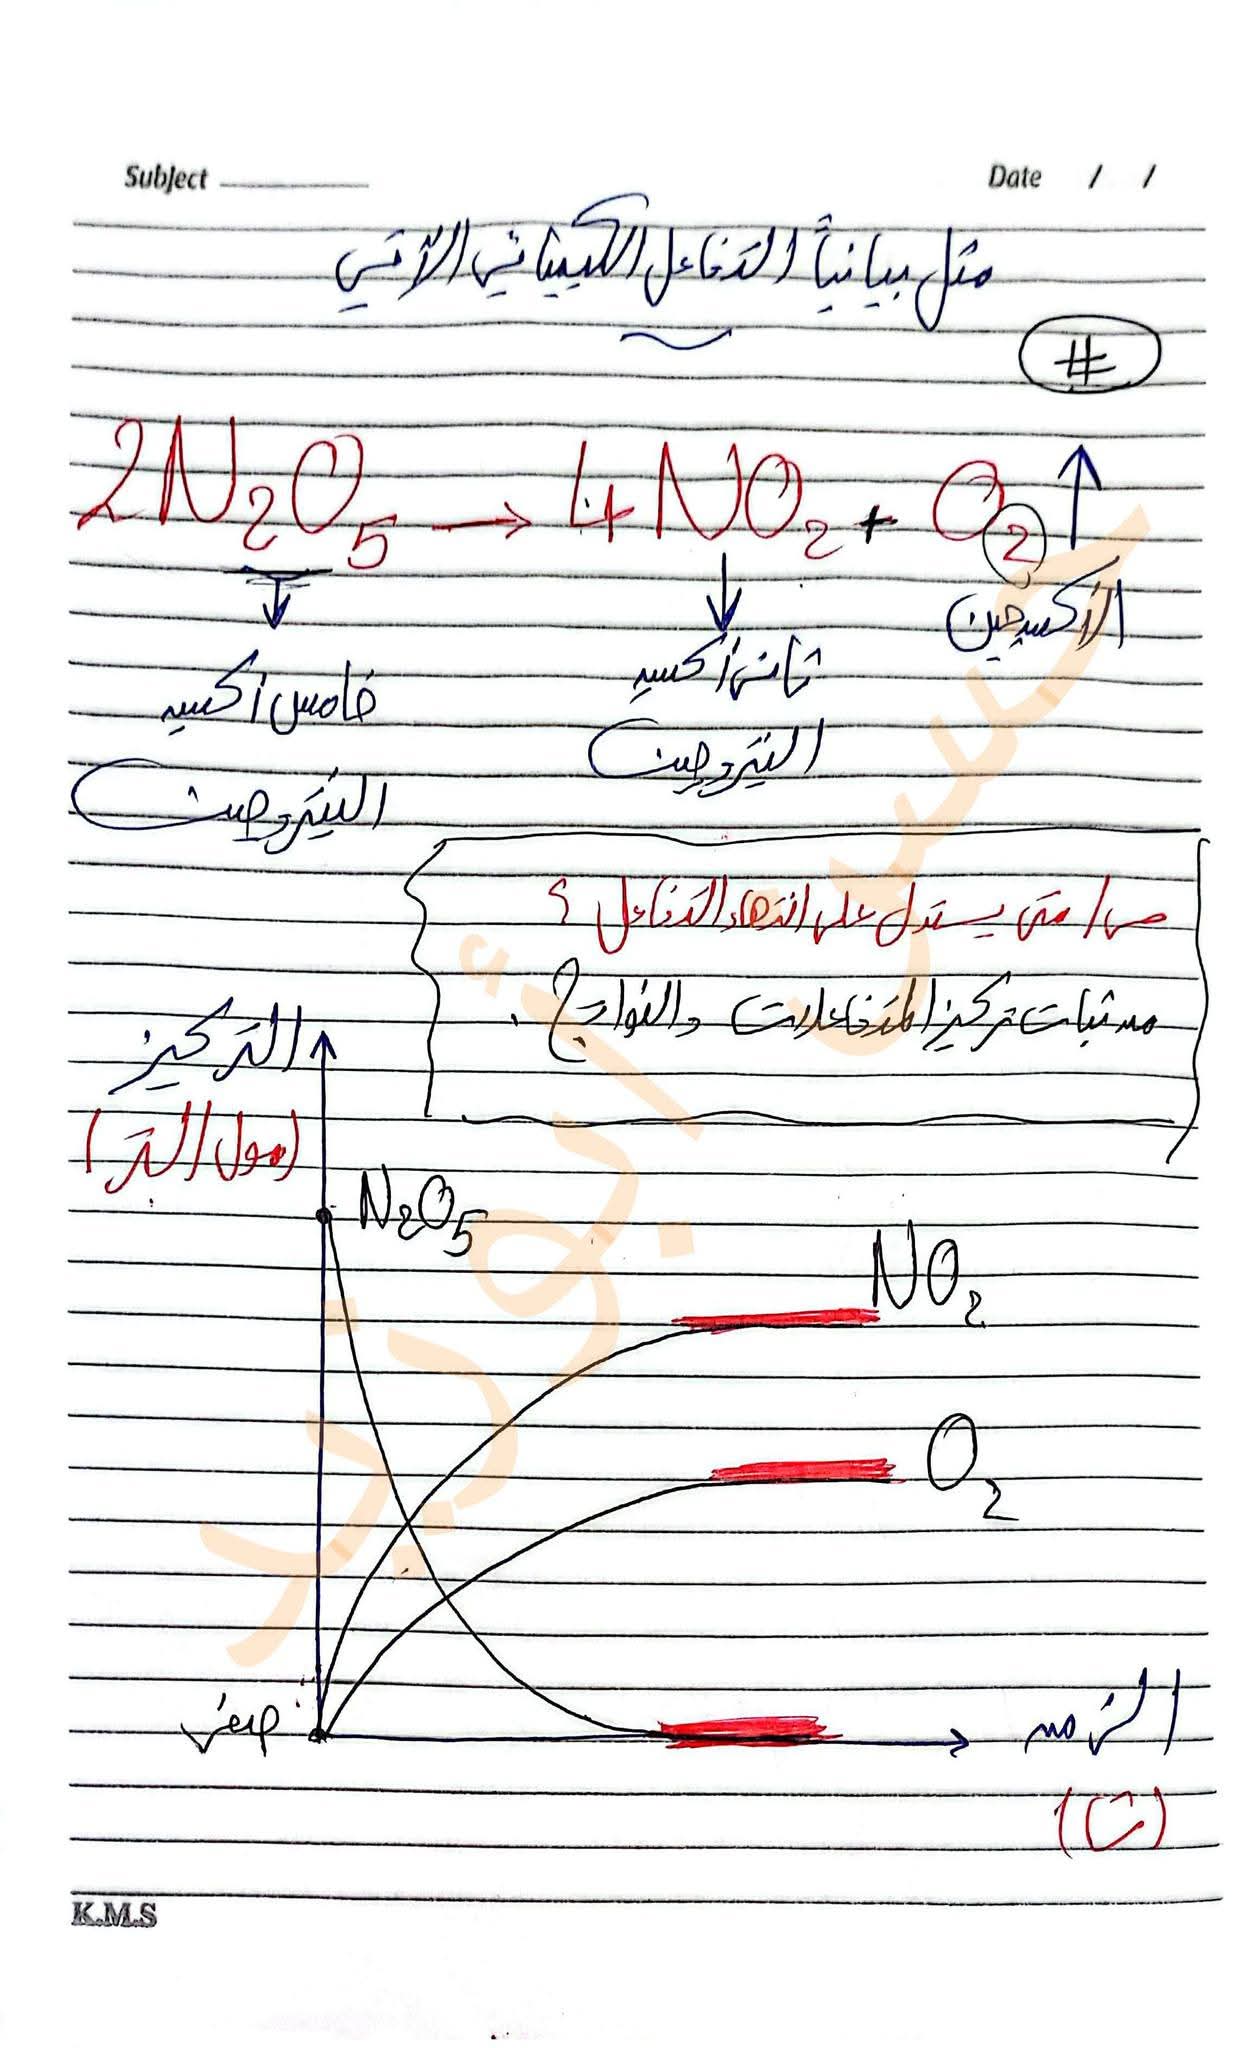 Subject
Date / /
مثل بيانياً التفاعل الكيميائي الآتي
#
2N₂O₅ → 4NO₂ + O₂ ↑
الأكسجين
ثاني أكسيد
النيتروجين
خامس أكسيد
النيتروجين
س/ متى يستدل على انتهاء التفاعل ؟
من ثبات تركيز المتفاعلات والنواتج .
التركيز
(مول/لتر)
N₂O₅
NO₂
O₂
صفر
الزمن
(ث)
K.M.S
حسين أبو زيد